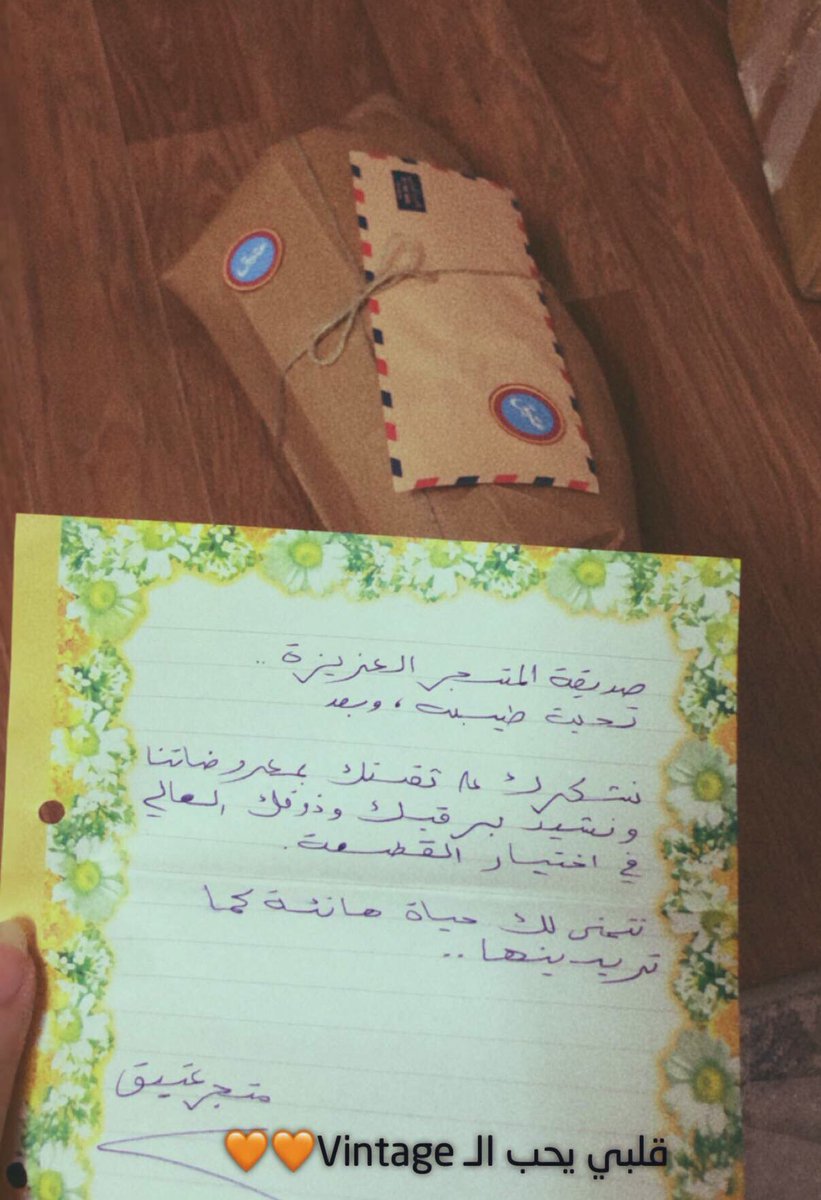 صديقة المتجر العزيزة ..
تحية طيبة ، وبعد
نشكرك على ثقتك بمعروضاتنا
ونشيد برقيك وذوقك العالي
في اختيار القطعة.
نتمنى لك حياة هانئة كما
تريدينها ..
متجر عتيق
قلبي يحب الـ Vintage🧡🧡